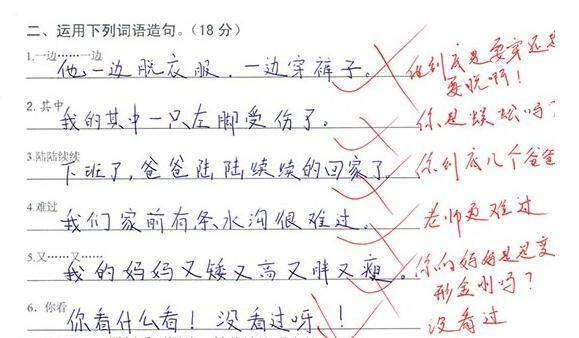 二、运用下列词语造句。(18分)
1.一边……一边
他一边脱衣服，一边穿裤子。
他到底是要穿还是
要脱啊！
2.其中
我的其中一只左脚受伤了。
你是蜈蚣吗？
3.陆陆续续
下班了，爸爸陆陆续续的回家了。
你到底几个爸爸
4.难过
我们家前有条水沟很难过。
老师更难过
5.又……又……
我的妈妈又矮又高又胖又瘦。
你的妈妈是是变
形金刚吗？
6.你看
你看什么看！没看过呀！！
没看过